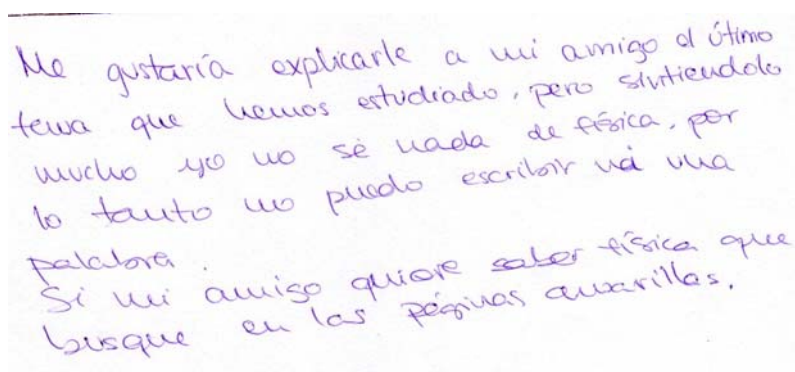 Me gustaría explicarle a mi amigo el útimo
tema que hemos estudiado, pero sintiendolo
mucho yo no sé nada de física, por
lo tanto no puedo escribir ná una
palabra.
Si mi amigo quiere saber física que
busque en las páginas amarillas.